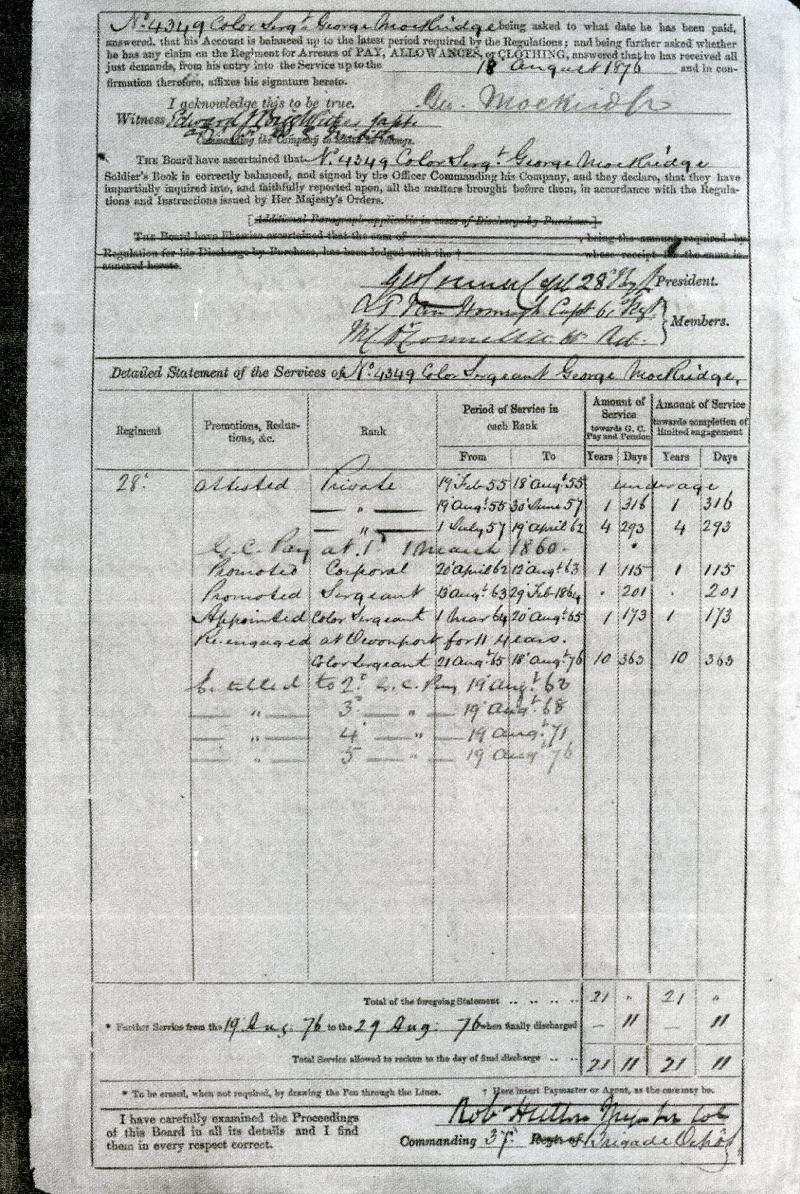 No 4349 Color Sergt George Mockridge being asked to what date he has been paid,
answered, that his Account is balanced up to the latest period required by the Regulations; and being further asked whether
he has any claim on the Regiment for Arrears of PAY, ALLOWANCES, or CLOTHING, answered that he has received all
just demands, from his entry into the Service up to the 18 August 1876 and in con-
firmation therefore, affixes his signature hereto.
I acknowledge this to be true. Geo. Mockridge
Witness Edward
Commanding the Company to which he belongs.
THE Board have ascertained that No 4349 Color Sergt George Mockridge
Soldier's Book is correctly balanced, and signed by the Officer Commanding his Company, and they declare, that they have
impartially inquired into, and faithfully reported upon, all the matters brought before them, in accordance with the Regula-
tions and Instructions issued by Her Majesty's Orders.
[Additional Paragraph applicable in cases of Discharge by Purchase.]
The Board have likewise ascertained that the sum of , being the amount required by
Regulation for his Discharge by Purchase, has been lodged with the † whose receipt for the same is
annexed hereto.
Capt 28 President.
Capt 6
Members.
Detailed Statement of the Services of No 4349 Color Sergeant George Mockridge,
Regiment Promotions, Reduc-tions, &c. Rank Period of Service in each Rank Amount of Service towards G. C. Pay and Pension Amount of Service towards completion of limited engagement
From To Years Days Years Days
28 attested Private 19 Feb 55 18 Augt 55 underage
— " — 19 Augt 55 30 June 57 1 316 1 316
— " — 1 July 57 19 April 62 4 293 4 293
G. C. Pay at 1d 1 March 1860.
Promoted Corporal 20 April 62 12 Augt 63 1 115 1 115
Promoted Sergeant 13 Augt 63 29 Feb 1864 . 201 . 201
Appointed Color Sergeant 1 Mar 64 20 Augt 65 1 173 1 173
Re-engaged at Devonport for 11 years.
Color Sergeant 21 Augt 65 18 Augt 76 10 363 10 363
Entitled to 2d G. C. Pay 19 Augt 62
— " — 3 — " — 19 Augt 68
— " — 4 — " — 19 Augt 71
— " — 5 — " — 19 Augt 76
Total of the foregoing Statement .. .. .. .. 21 " 21 "
* Further Service from the 19 Aug. 76 to the 29 Aug. 76 when finally discharged — 11 — 11
Total Service allowed to reckon to the day of final discharge .. .. 21 11 21 11
* To be erased, when not required, by drawing the Pen through the Lines. † Here insert Paymaster or Agent, as the case may be.
I have carefully examined the Proceedings
of this Board in all its details and I find
them in every respect correct.
Commanding 37 Regt of Brigade Depôt